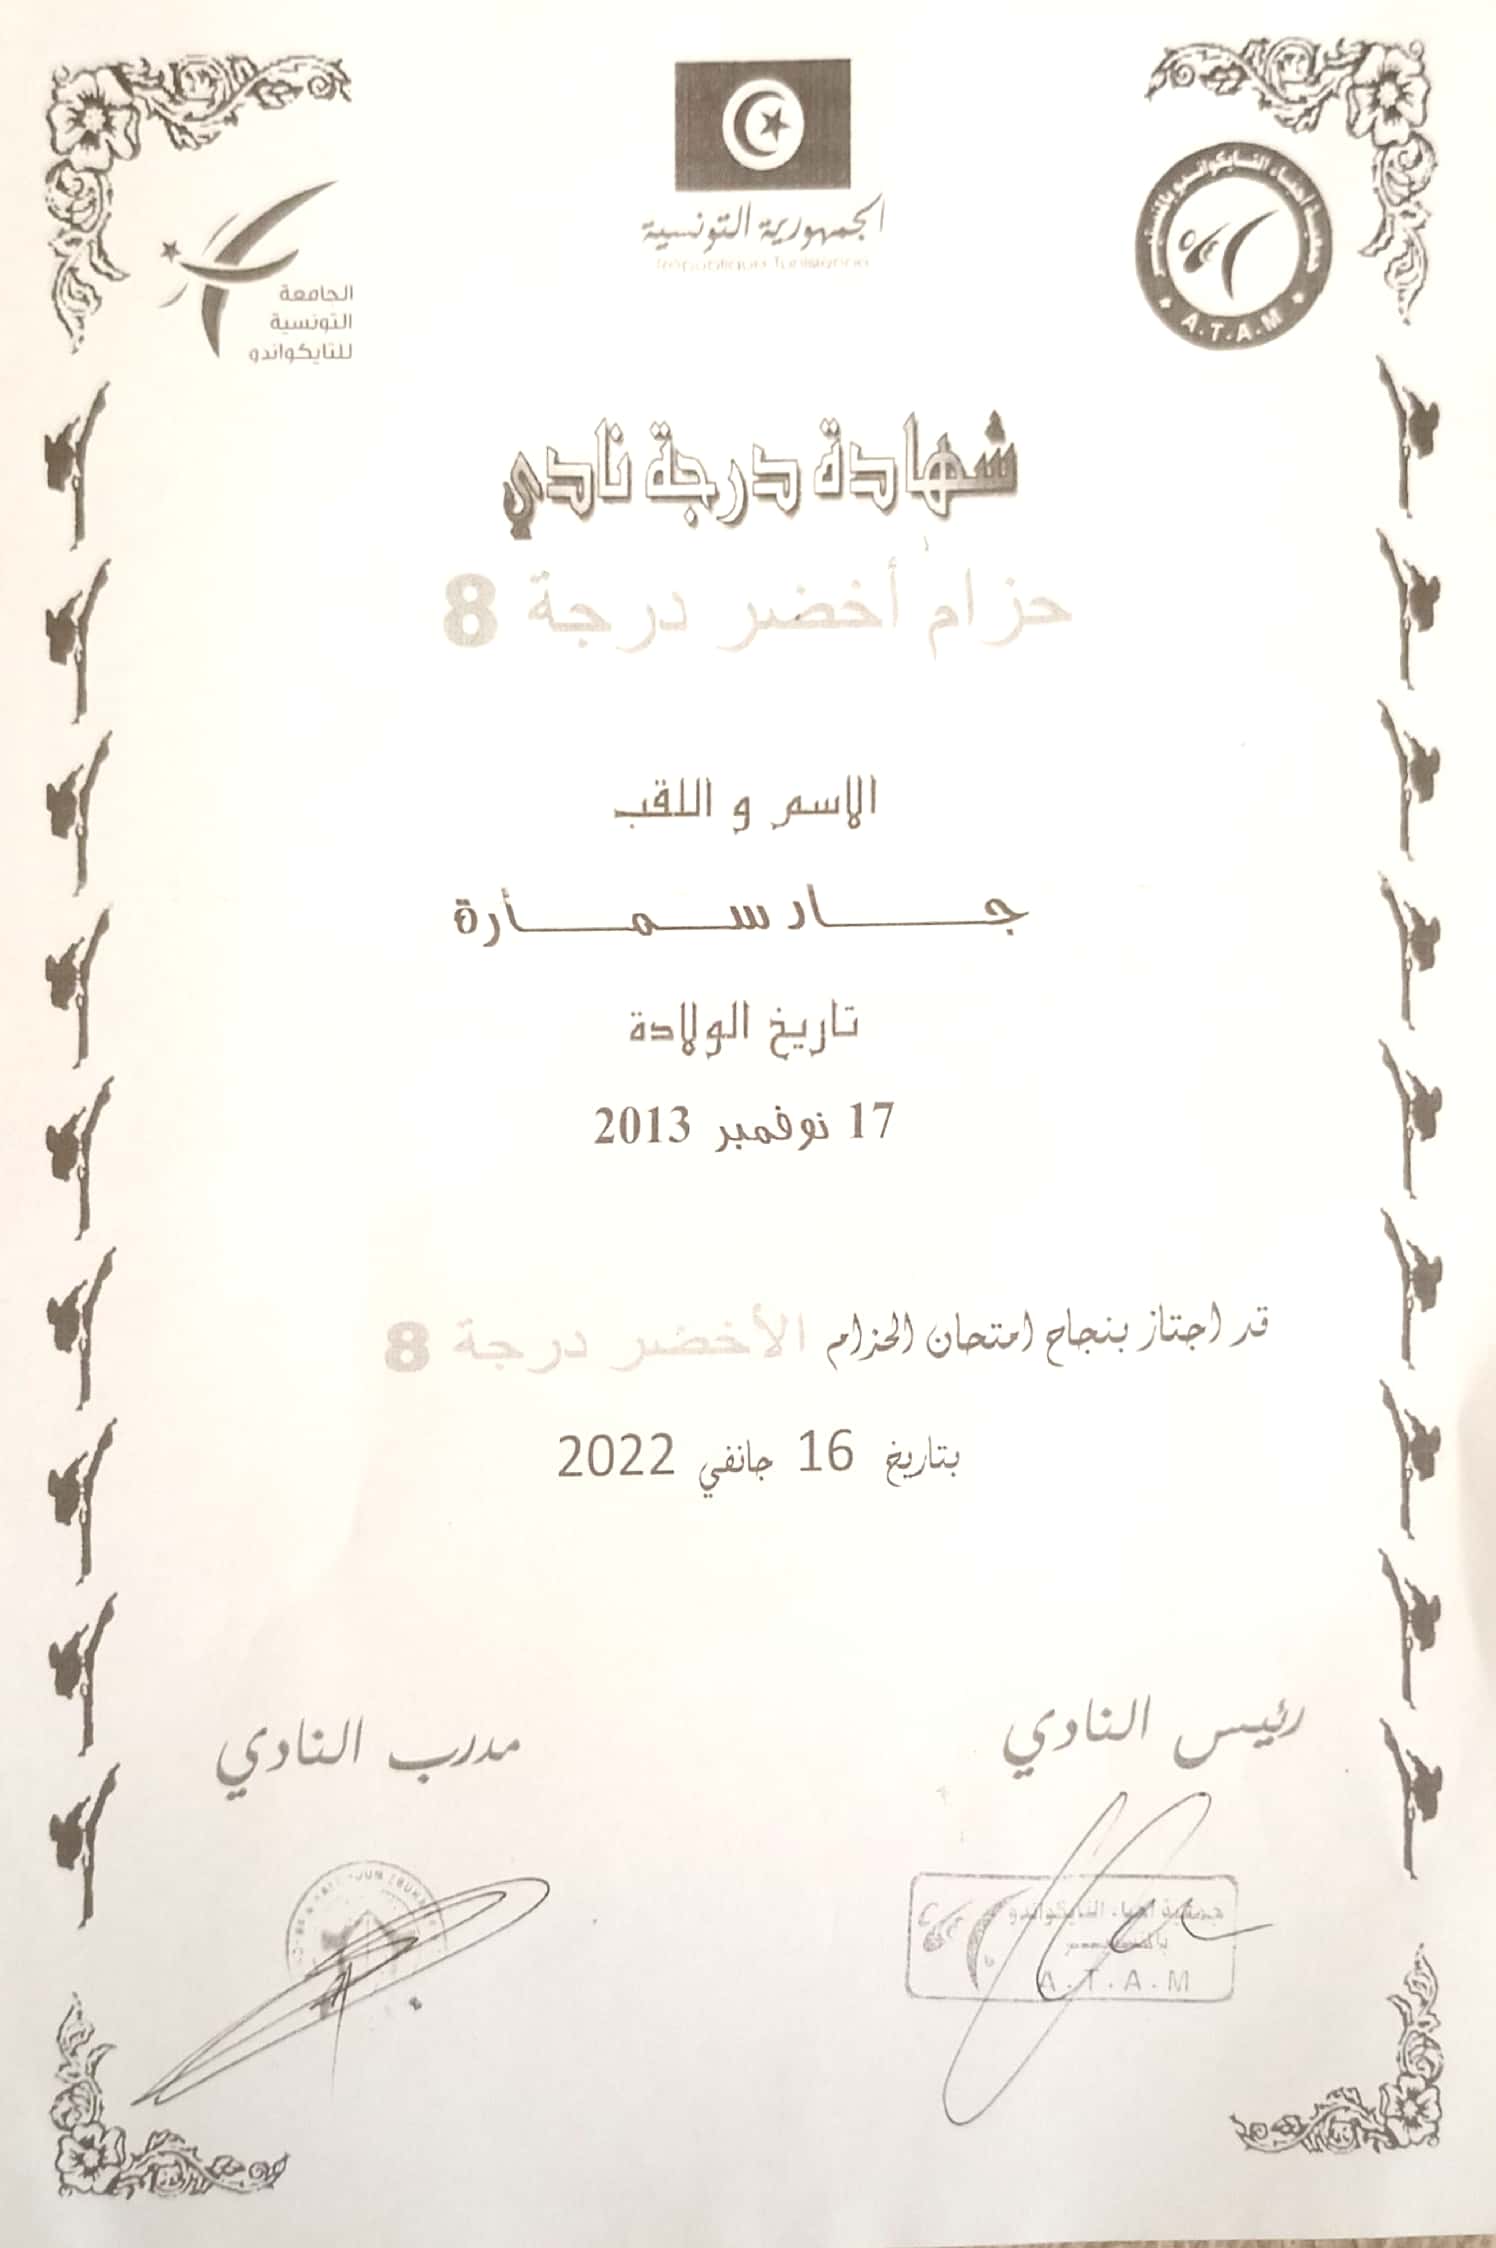 الجمهورية التونسية
République Tunisienne
جمعية أحباء التايكواندو بالمنستير
A.T.A.M
الجامعة
التونسية
للتايكواندو
شهادة درجة نادي
حزام أخضر درجة 8
الاسم و اللقب
جاد سمأرة
تاريخ الولادة
17 نوفمبر 2013
قد اجتاز بنجاح امتحان الحزام الأخضر درجة 8
بتاريخ 16 جانفي 2022
رئيس النادي
مدرب النادي
جمعية أحباء التايكواندو
A.T.A.M